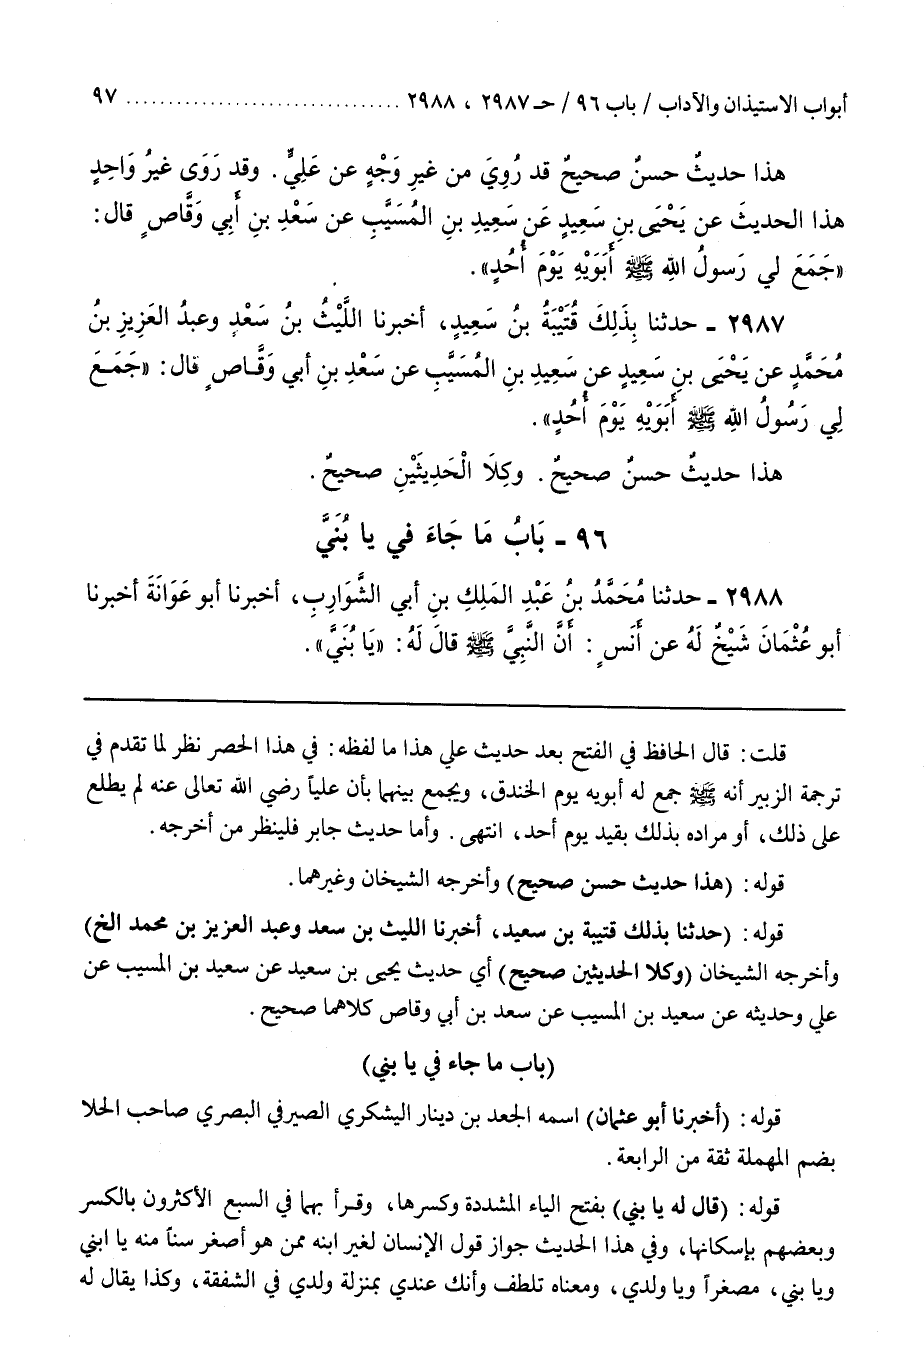 أبواب الاستيذان والآداب / باب ٩٦ / حـ ٢٩٨٧ ، ٢٩٨٨ .............................. ٩٧
هذا حديثٌ حسنٌ صحيحٌ قد رُوِيَ من غيرِ وَجْهٍ عن عَلِيٍّ. وقد رَوَى غيرُ وَاحِدٍ
هذا الحديثَ عن يَحْيَى بنِ سَعِيدٍ عَن سَعِيدِ بنِ المُسَيَّبِ عن سَعْدِ بنِ أَبي وَقَّاصٍ قال:
«جَمَعَ لي رَسولُ اللهِ ﷺ أَبَوَيْهِ يَوْمَ أُحُدٍ».
٢٩٨٧ ـ حدثنا بِذَلِكَ قُتَيْبَةُ بنُ سَعِيدٍ، أخبرنا اللَّيْثُ بنُ سَعْدٍ وعبدُ العَزِيزِ بنُ
مُحَمَّدٍ عن يَحْيَى بنِ سَعِيدٍ عن سَعِيدِ بنِ المُسَيَّبِ عن سَعْدِ بنِ أبي وَقَّاصٍ قال: «جَمَعَ
لِي رَسُولُ اللهِ ﷺ أَبَوَيْهِ يَوْمَ أُحُدٍ».
هذا حديثٌ حسنٌ صحيحٌ. وكِلَا الْحَدِيثَيْنِ صحيحٌ.
٩٦ ـ بَابُ مَا جَاءَ في يا بُنَيَّ
٢٩٨٨ ـ حدثنا مُحَمَّدُ بنُ عَبْدِ المَلِكِ بنِ أبي الشَّوَارِبِ، أخبرنا أبو عَوَانَةَ أخبرنا
أبو عُثْمَانَ شَيْخٌ لَهُ عن أَنَسٍ: أَنَّ النَّبِيَّ ﷺ قالَ لَهُ: «يَا بُنَيَّ».
قلت: قال الحافظ في الفتح بعد حديث علي هذا ما لفظه: في هذا الحصر نظر لما تقدم في
ترجمة الزبير أنه ﷺ جمع له أبويه يوم الخندق، ويجمع بينهما بأن علياً رضي الله تعالى عنه لم يطلع
على ذلك، أو مراده بذلك بقيد يوم أحد، انتهى. وأما حديث جابر فلينظر من أخرجه.
قوله: (هذا حديث حسن صحيح) وأخرجه الشيخان وغيرهما.
قوله: (حدثنا بذلك قتيبة بن سعيد، أخبرنا الليث بن سعد وعبد العزيز بن محمد الخ)
وأخرجه الشيخان (وكلا الحديثين صحيح) أي حديث يحيى بن سعيد عن سعيد بن المسيب عن
علي وحديثه عن سعيد بن المسيب عن سعد بن أبي وقاص كلاهما صحيح.
(باب ما جاء في يا بني)
قوله: (أخبرنا أبو عثمان) اسمه الجعد بن دينار اليشكري الصيرفي البصري صاحب الحلا
بضم المهملة ثقة من الرابعة.
قوله: (قال له يا بني) بفتح الياء المشددة وكسرها، وقرأ بهما في السبع الأكثرون بالكسر
وبعضهم بإسكانها، وفي هذا الحديث جواز قول الإنسان لغير ابنه ممن هو أصغر سناً منه يا ابني
ويا بني، مصغراً ويا ولدي، ومعناه تلطف وأنك عندي بمنزلة ولدي في الشفقة، وكذا يقال له